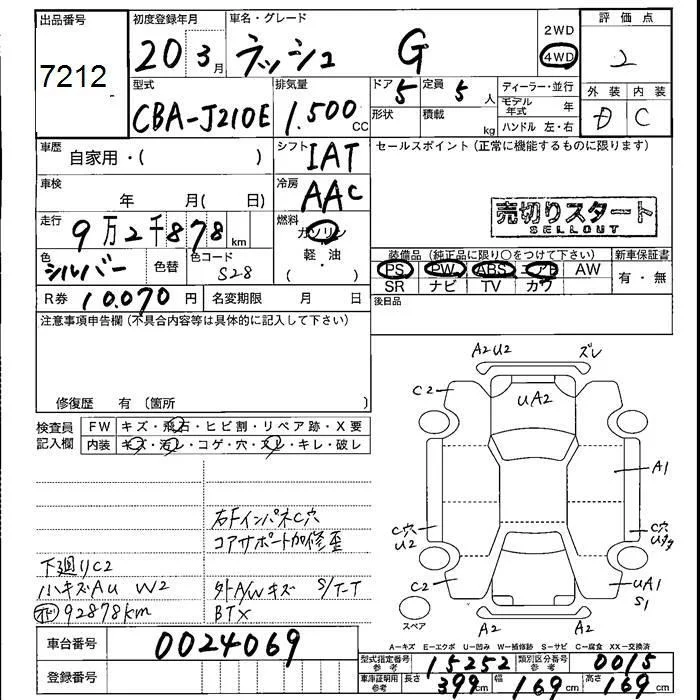 出品番号
7212
初度登録年月
20 3月
車名・グレード
ラッシュ G
2WD
4WD
評価点
2
外装 内装
D C
型式
CBA-J210E
排気量
1.500 CC
ドア 5
形状
定員 5 人
積載 kg
ディーラー・並行
モデル年式 年
ハンドル 左・右
車歴
自家用・( )
シフト IAT
セールスポイント(正常に機能するものに限ります)
車検
年 月( 日)
冷房 AAC
売切りスタート
SELLOUT
走行
9万2千878 km
燃料
ガソリン
・
軽・油
( )
色
シルバー
色替
色コード
S28
装備品(純正品に限り○をつけて下さい)
新車保証書
PS PW ABS エアB AW
SR ナビ TV カワ
有・無
R券 10.070 円
名変期限 月 日
後日品
注意事項申告欄(不具合内容等は具体的に記入して下さい)
修復歴 有(箇所 )
検査員記入欄
FW キズ・飛石・ヒビ割・リペア跡・X要
内装 キズ・汚レ・コゲ・穴・スレ・キレ・破レ
右FインパネC穴
コアサポート加修歪
下廻りC2
小キズAU W2
外A/Wキズ S/T-T
92878km
BTX
A2U2 ズレ
C2
UA2
A1
C穴
U2
C穴
C2
UA1
S1
スペア
A2 A2
A-キズ E-エクボ U-凹み W-補修跡 S-サビ C-腐食 XX-交換済
車台番号
0024069
登録番号
型式指定番号 参考 15252
類別区分番号 参考 0015
車庫証明用 参考 長さ 399cm 幅 169cm 高さ 169cm